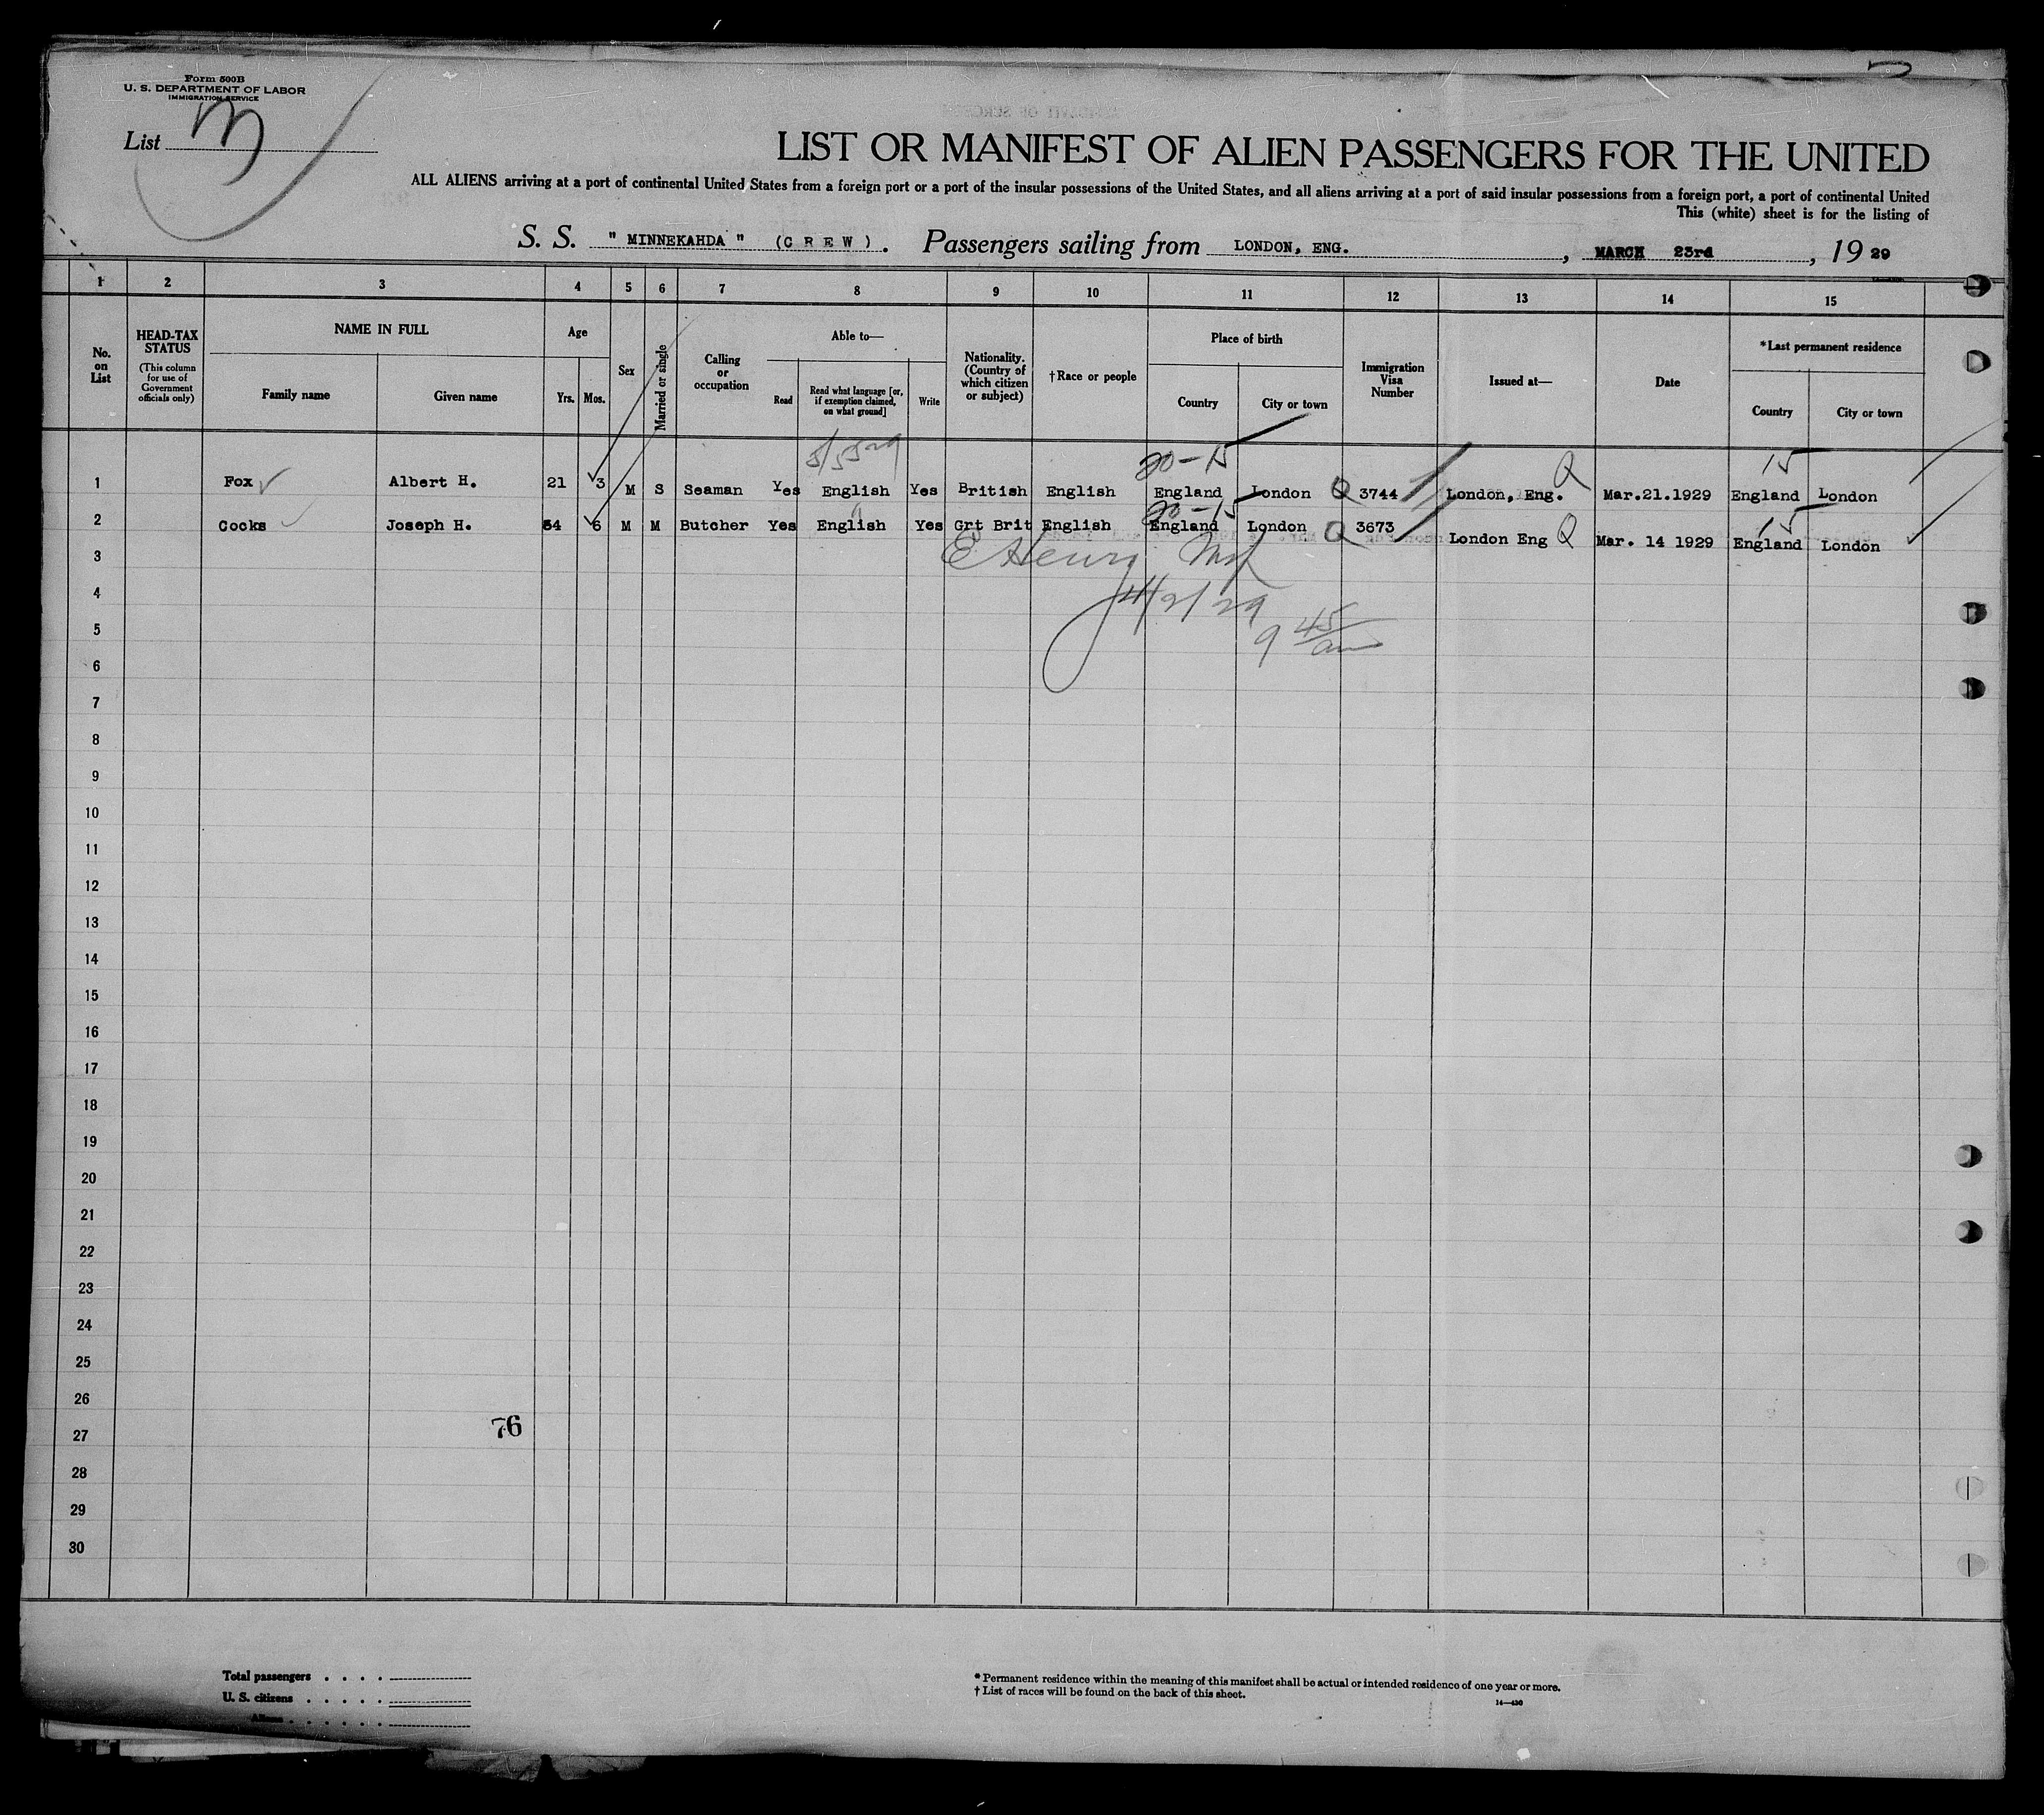 Form 500B
U. S. DEPARTMENT OF LABOR
IMMIGRATION SERVICE
List
LIST OR MANIFEST OF ALIEN PASSENGERS FOR THE UNITED
ALL ALIENS arriving at a port of continental United States from a foreign port or a port of the insular possessions of the United States, and all aliens arriving at a port of said insular possessions from a foreign port, a port of continental United
This (white) sheet is for the listing of
S. S. " MINNEKAHDA " (C R E W ) . Passengers sailing from LONDON, ENG. , MARCH 23rd , 19 29
1 2 3 4 5 6 7 8 9 10 11 12 13 14 15
No. on List
HEAD-TAX STATUS (This column for use of Government officials only)
NAME IN FULL
Family name Given name
Age
Yrs. Mos.
Sex
Married or single
Calling or occupation
Able to—
Read
Read what language [or, if exemption claimed, on what ground]
Write
Nationality. (Country of which citizen or subject)
†Race or people
Place of birth
Country City or town
Immigration Visa Number
Issued at—
Date
*Last permanent residence
Country City or town
20-15 Q 15
1 Fox Albert H. 21 3 M S Seaman Yes English Yes British English England London Q 3744 London, Eng. Mar.21.1929 England London
20-15 15
2 Cocks Joseph H. 54 6 M M Butcher Yes English Yes Grt Brit English England London Q 3673 London Eng Q Mar. 14 1929 England London
3
4
4/2/29
5
9 45/am
6
7
8
9
10
11
12
13
14
15
16
17
18
19
20
21
22
23
24
25
26
76
27
28
29
30
Total passengers . . . .
U. S. citizens . . . . .
Aliens . . . . . .
* Permanent residence within the meaning of this manifest shall be actual or intended residence of one year or more.
† List of races will be found on the back of this sheet.
14—430